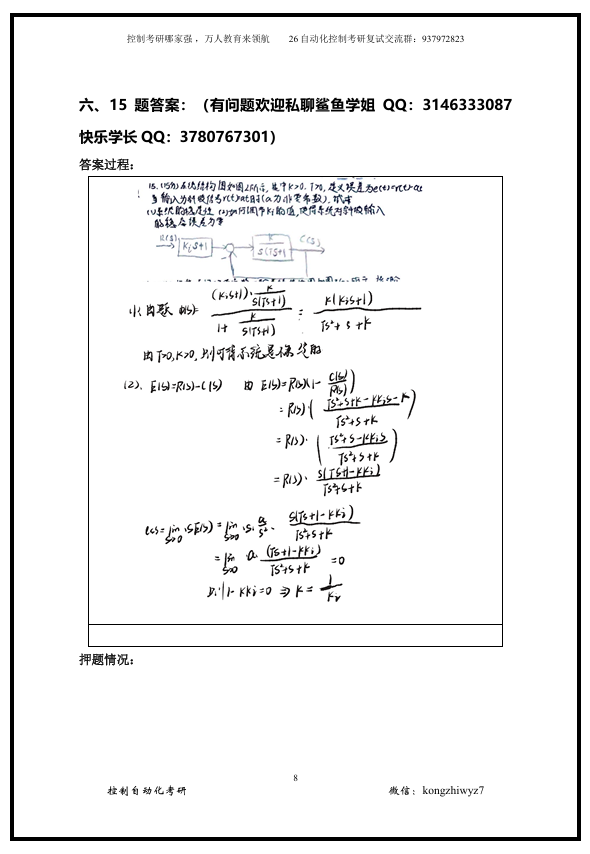 控制考研哪家强，万人教育来领航 26 自动化控制考研复试交流群：937972823
六、15 题答案：（有问题欢迎私聊鲨鱼学姐 QQ：3146333087
快乐学长 QQ：3780767301）
答案过程：
15. (15分)系统结构图如图所示, 其中K>0. T>0, 定义误差为e(t)=r(t)-c(t)
当输入为斜坡信号r(t)=at时(a为非零常数), 试求
(1)系统的稳定性 (2)如何调节Ki的值, 使得系统对斜坡输入
的稳态误差为零
R(s) KiS+1 K/S(TS+1) C(s)
(1) 由题 Φ(s)= (KiS+1)·K/S(TS+1) / 1+ K/S(TS+1) = K(KiS+1) / TS²+S+K
由T>0,K>0, 则可
(2). E(s)=R(s)-C(s) 由 E(s)=R(s)(1- C(s)/R(s))
=R(s)·( TS²+S+K-KKiS-K / TS²+S+K )
=R(s)·( TS²+S-KKiS / TS²+S+K )
=R(s)· S(TS+1-KKi) / TS²+S+K
ess=lim S→0 SE(s)=lim S→0 S· a/S² · S(TS+1-KKi) / TS²+S+K
=lim S→0 a· (TS+1-KKi) / TS²+S+K =0
则1-KKi=0 ⇒ K= 1/Ki
押题情况：
8
控制自动化考研 微信：kongzhiwyz7